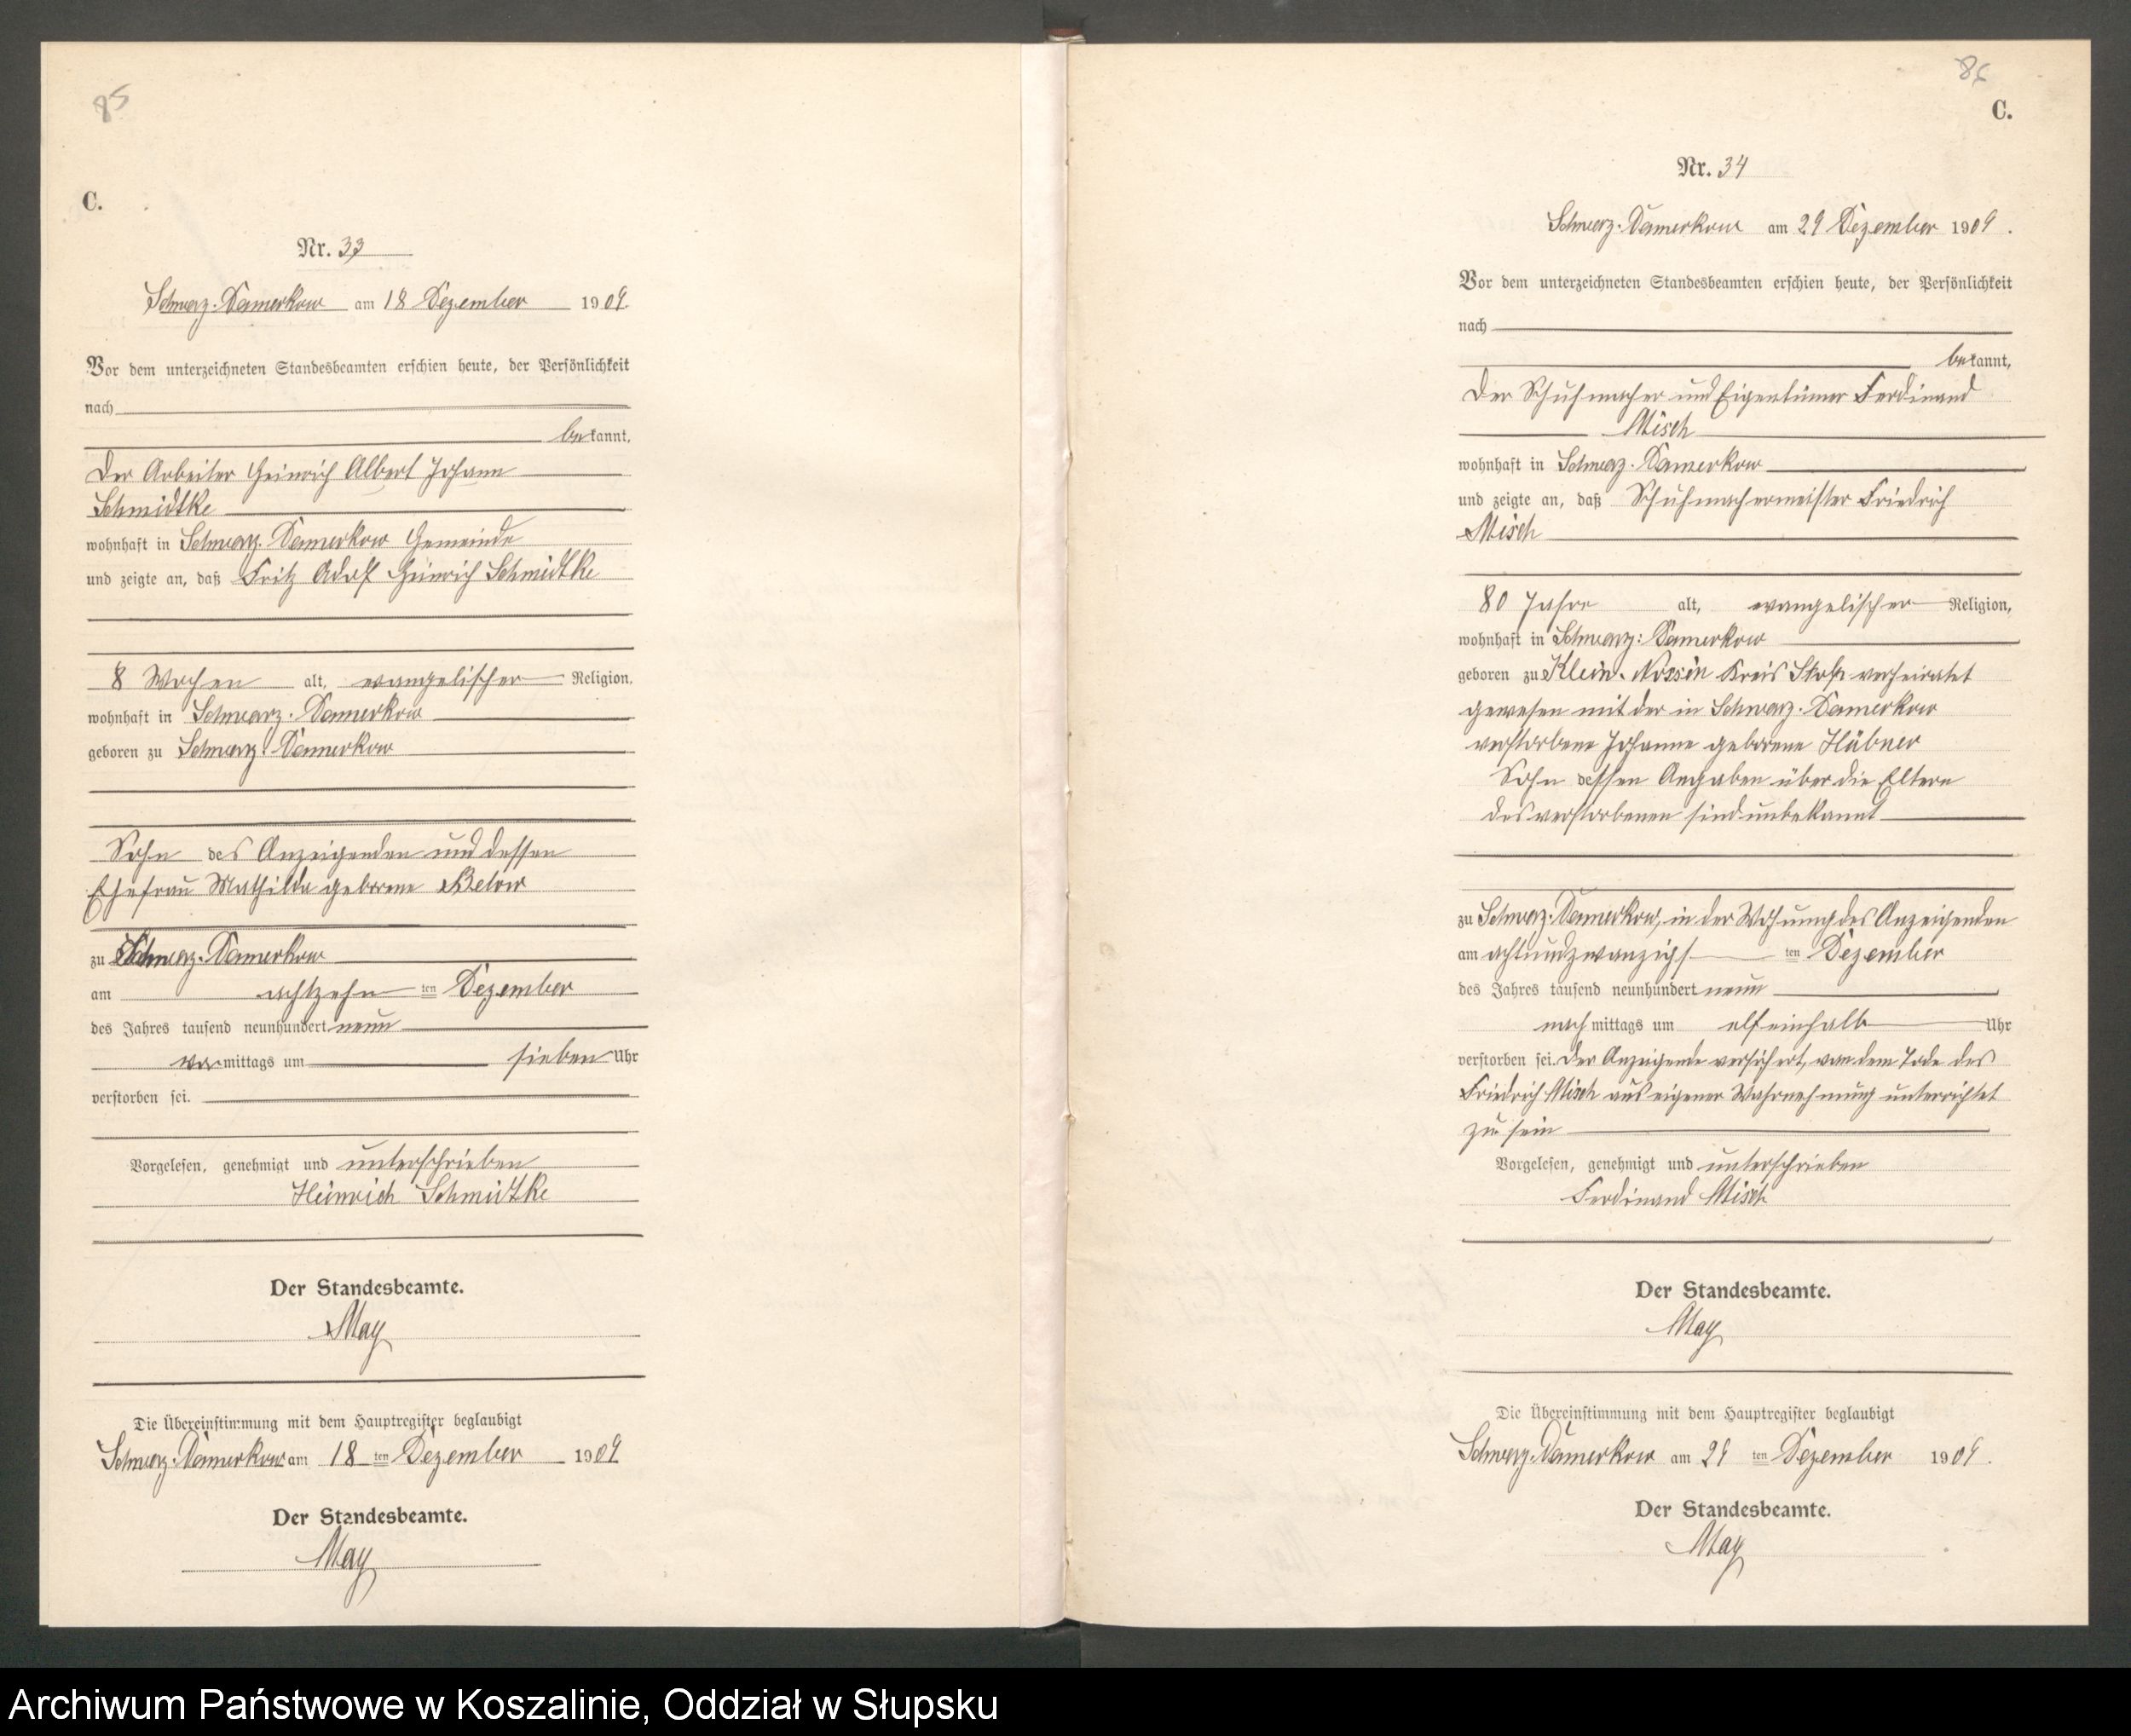 85
C.
Nr. 33
Schwarz-Damerkow am 18 Dezember 1909.
Vor dem unterzeichneten Standesbeamten erschien heute, der Persönlichkeit
nach
bekannt,
der Arbeiter Heinrich Albert Johann
Schmidtke
wohnhaft in Schwarz-Damerkow Gemeinde
und zeigte an, daß Fritz Adolf Heinrich Schmidtke
8 Wochen alt, evangelischer Religion,
wohnhaft in Schwarz-Damerkow
geboren zu Schwarz-Damerkow
Sohn des Anzeigenden und dessen
Ehefrau Mathilde geborene Below
zu Schwarz-Damerkow
am achtzehn ten Dezember
des Jahres tausend neunhundert neun
vor mittags um sieben Uhr
verstorben sei.
Vorgelesen, genehmigt und unterschrieben
Heinrich Schmidtke
Der Standesbeamte.
May
Die Übereinstimmung mit dem Hauptregister beglaubigt
Schwarz-Damerkow am 18 ten Dezember 1909
Der Standesbeamte.
May
86
C.
Nr. 34
Schwarz-Damerkow am 29 Dezember 1909.
Vor dem unterzeichneten Standesbeamten erschien heute, der Persönlichkeit
nach
bekannt,
der Schuhmacher und Eigentümer Ferdinand
Misch
wohnhaft in Schwarz-Damerkow
und zeigte an, daß Schuhmachermeister Friedrich
Misch
80 Jahre alt, evangelischer Religion,
wohnhaft in Schwarz-Damerkow
geboren zu Klein-Nossin Kreis Stolp verheiratet
gewesen mit der in Schwarz-Damerkow
verstorbene Johanne geborene Hübner
Sohn dessen Angaben über die Eltern
des verstorbenen sind unbekannt
zu Schwarz-Damerkow, in der Wohnung des Anzeigenden
am achtundzwanzigst ten Dezember
des Jahres tausend neunhundert neun
nach mittags um elfeinhalb Uhr
verstorben sei. Der Anzeigende versichert, von dem Tode des
Friedrich Misch aus eigener Wahrnehmung unterrichtet
zu sein
Vorgelesen, genehmigt und unterschrieben
Ferdinand Misch
Der Standesbeamte.
May
Die Übereinstimmung mit dem Hauptregister beglaubigt
Schwarz-Damerkow am 29 ten Dezember 1909.
Der Standesbeamte.
May
Archiwum Państwowe w Koszalinie, Oddział w Słupsku